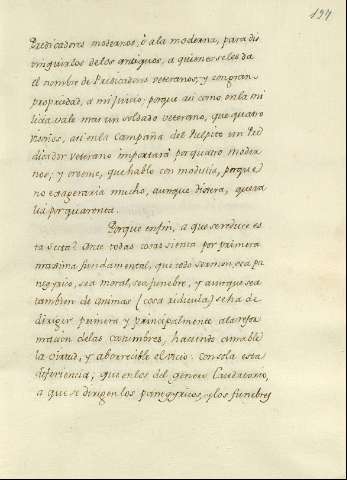 197
Predicadores modernos, ò ala moderna, para dis
tinguirlos delos antiguos, a quienes seles da
el nombre de Predicadores veteranos; y con gran
propiedad, a mi juicio; porque asi como en la mi
licia vale mas un soldado veterano, que quatro
visoños, asi en la Campaña del Pulpito un Pre
dicador veterano importarà por quatro moder
nos; y creeme, que hablo con modestia, porque
no exageraria mucho, aunque dixera, que va
lia por quarenta.
Porque en fin, a que se reduce es
ta secta? Ante todas cosas sienta por primera
maxima fundamental, que todo sermon, sea pa
negyrico, sea moral, sea funebre, y aunque sea
tambien de animas (cosa ridicula) se ha de
dirigir primera y principalmente ala refor
macion delas costumbres, haciendo amable
la virtud, y aborrecible el vicio: con sola esta
diferencia, que en los del genero Laudatorio,
a que se dirigen los panegyricos, y los funebres